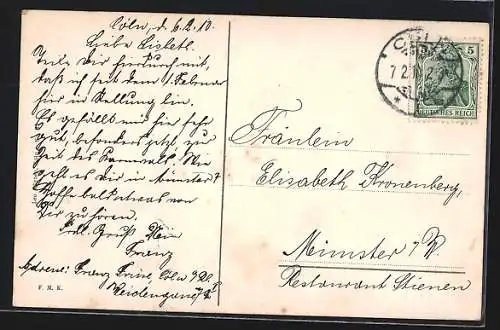 Cöln, d. 6.2.10.
Liebe Lisbetl.
Teile Dir hierdurch mit,
daß ich seit dem 1. Februar
hier in Stellung bin.
Es gefällt mir hier sehr
gut, besonders jetzt zur
Zeit des Karnevall. Wie
geht es Dir in Münster?
Hoffe bald etwas von
Dir zu hören.
Frdl. Gruß Dein
Franz
Adresse: Franz Cöln a/Rh.
Weidengasse
F. M. K.
CÖLN
7.2.10
5 5
DEUTSCHES REICH
Fräulein
Elisabeth Kronenberg,
Münster i/W.
Restaurant Stienen